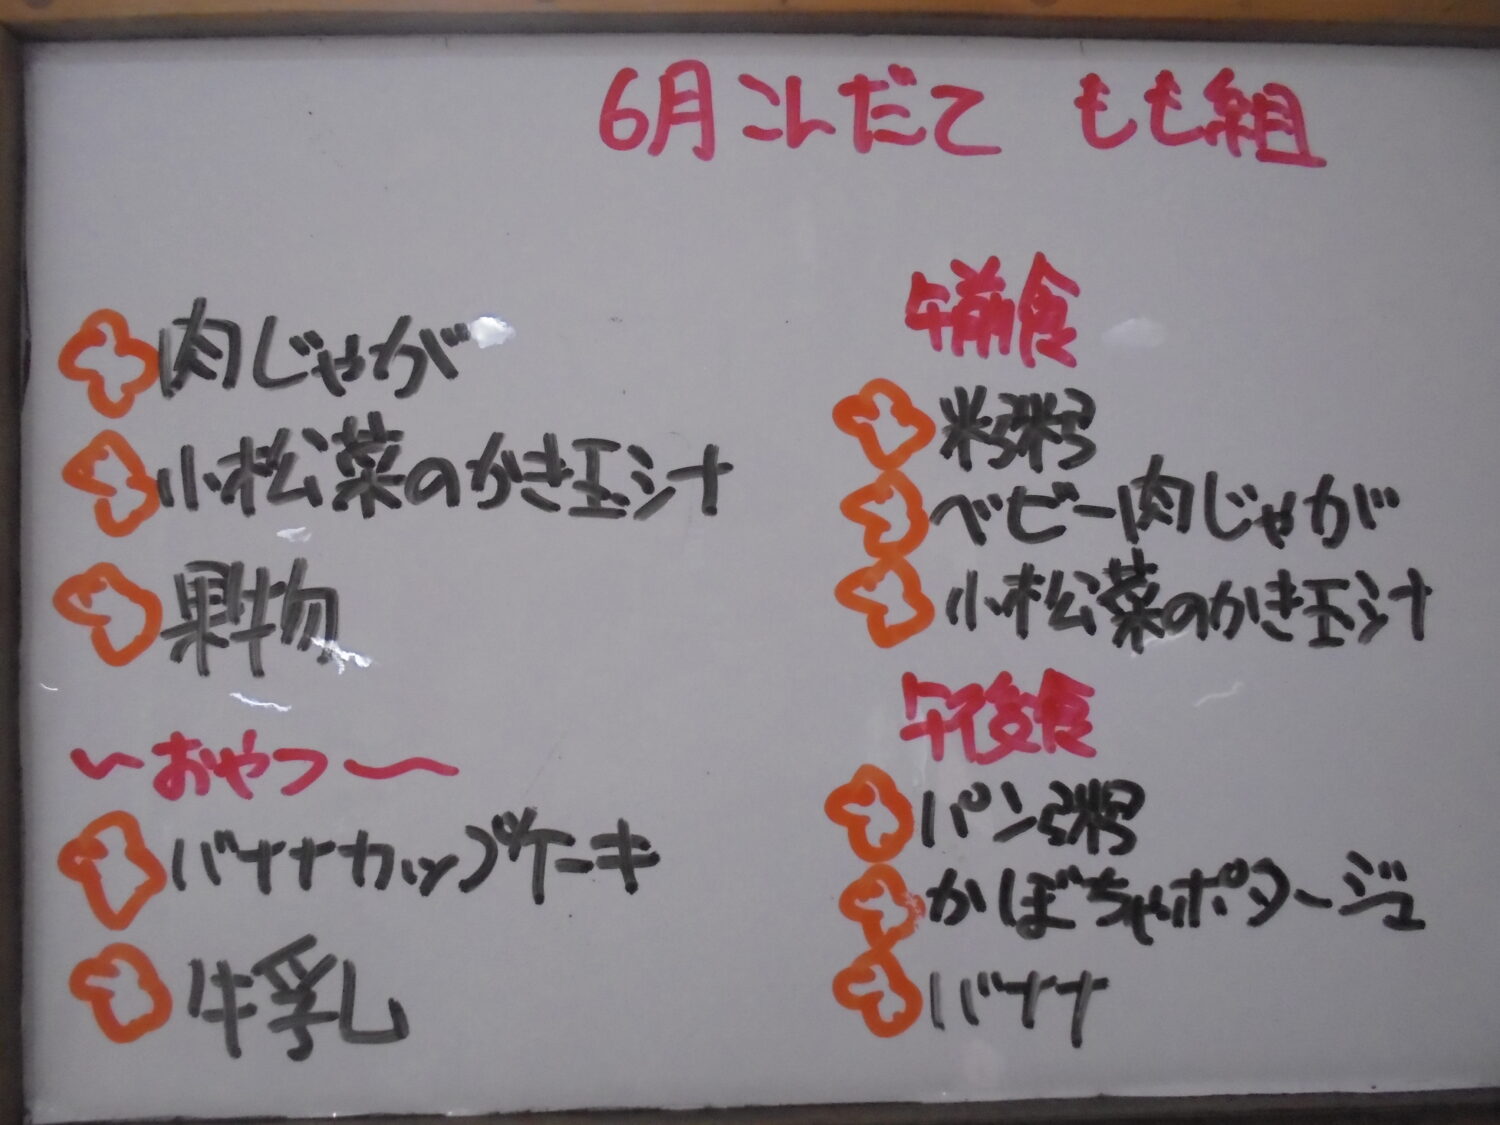 6月 こんだて もも組
肉じゃが
小松菜のかき玉汁
果物
〜おやつ〜
バナナカップケーキ
牛乳
午前食
米粥
ベビー肉じゃが
小松菜のかき玉汁
午後食
パン粥
かぼちゃポタージュ
バナナ